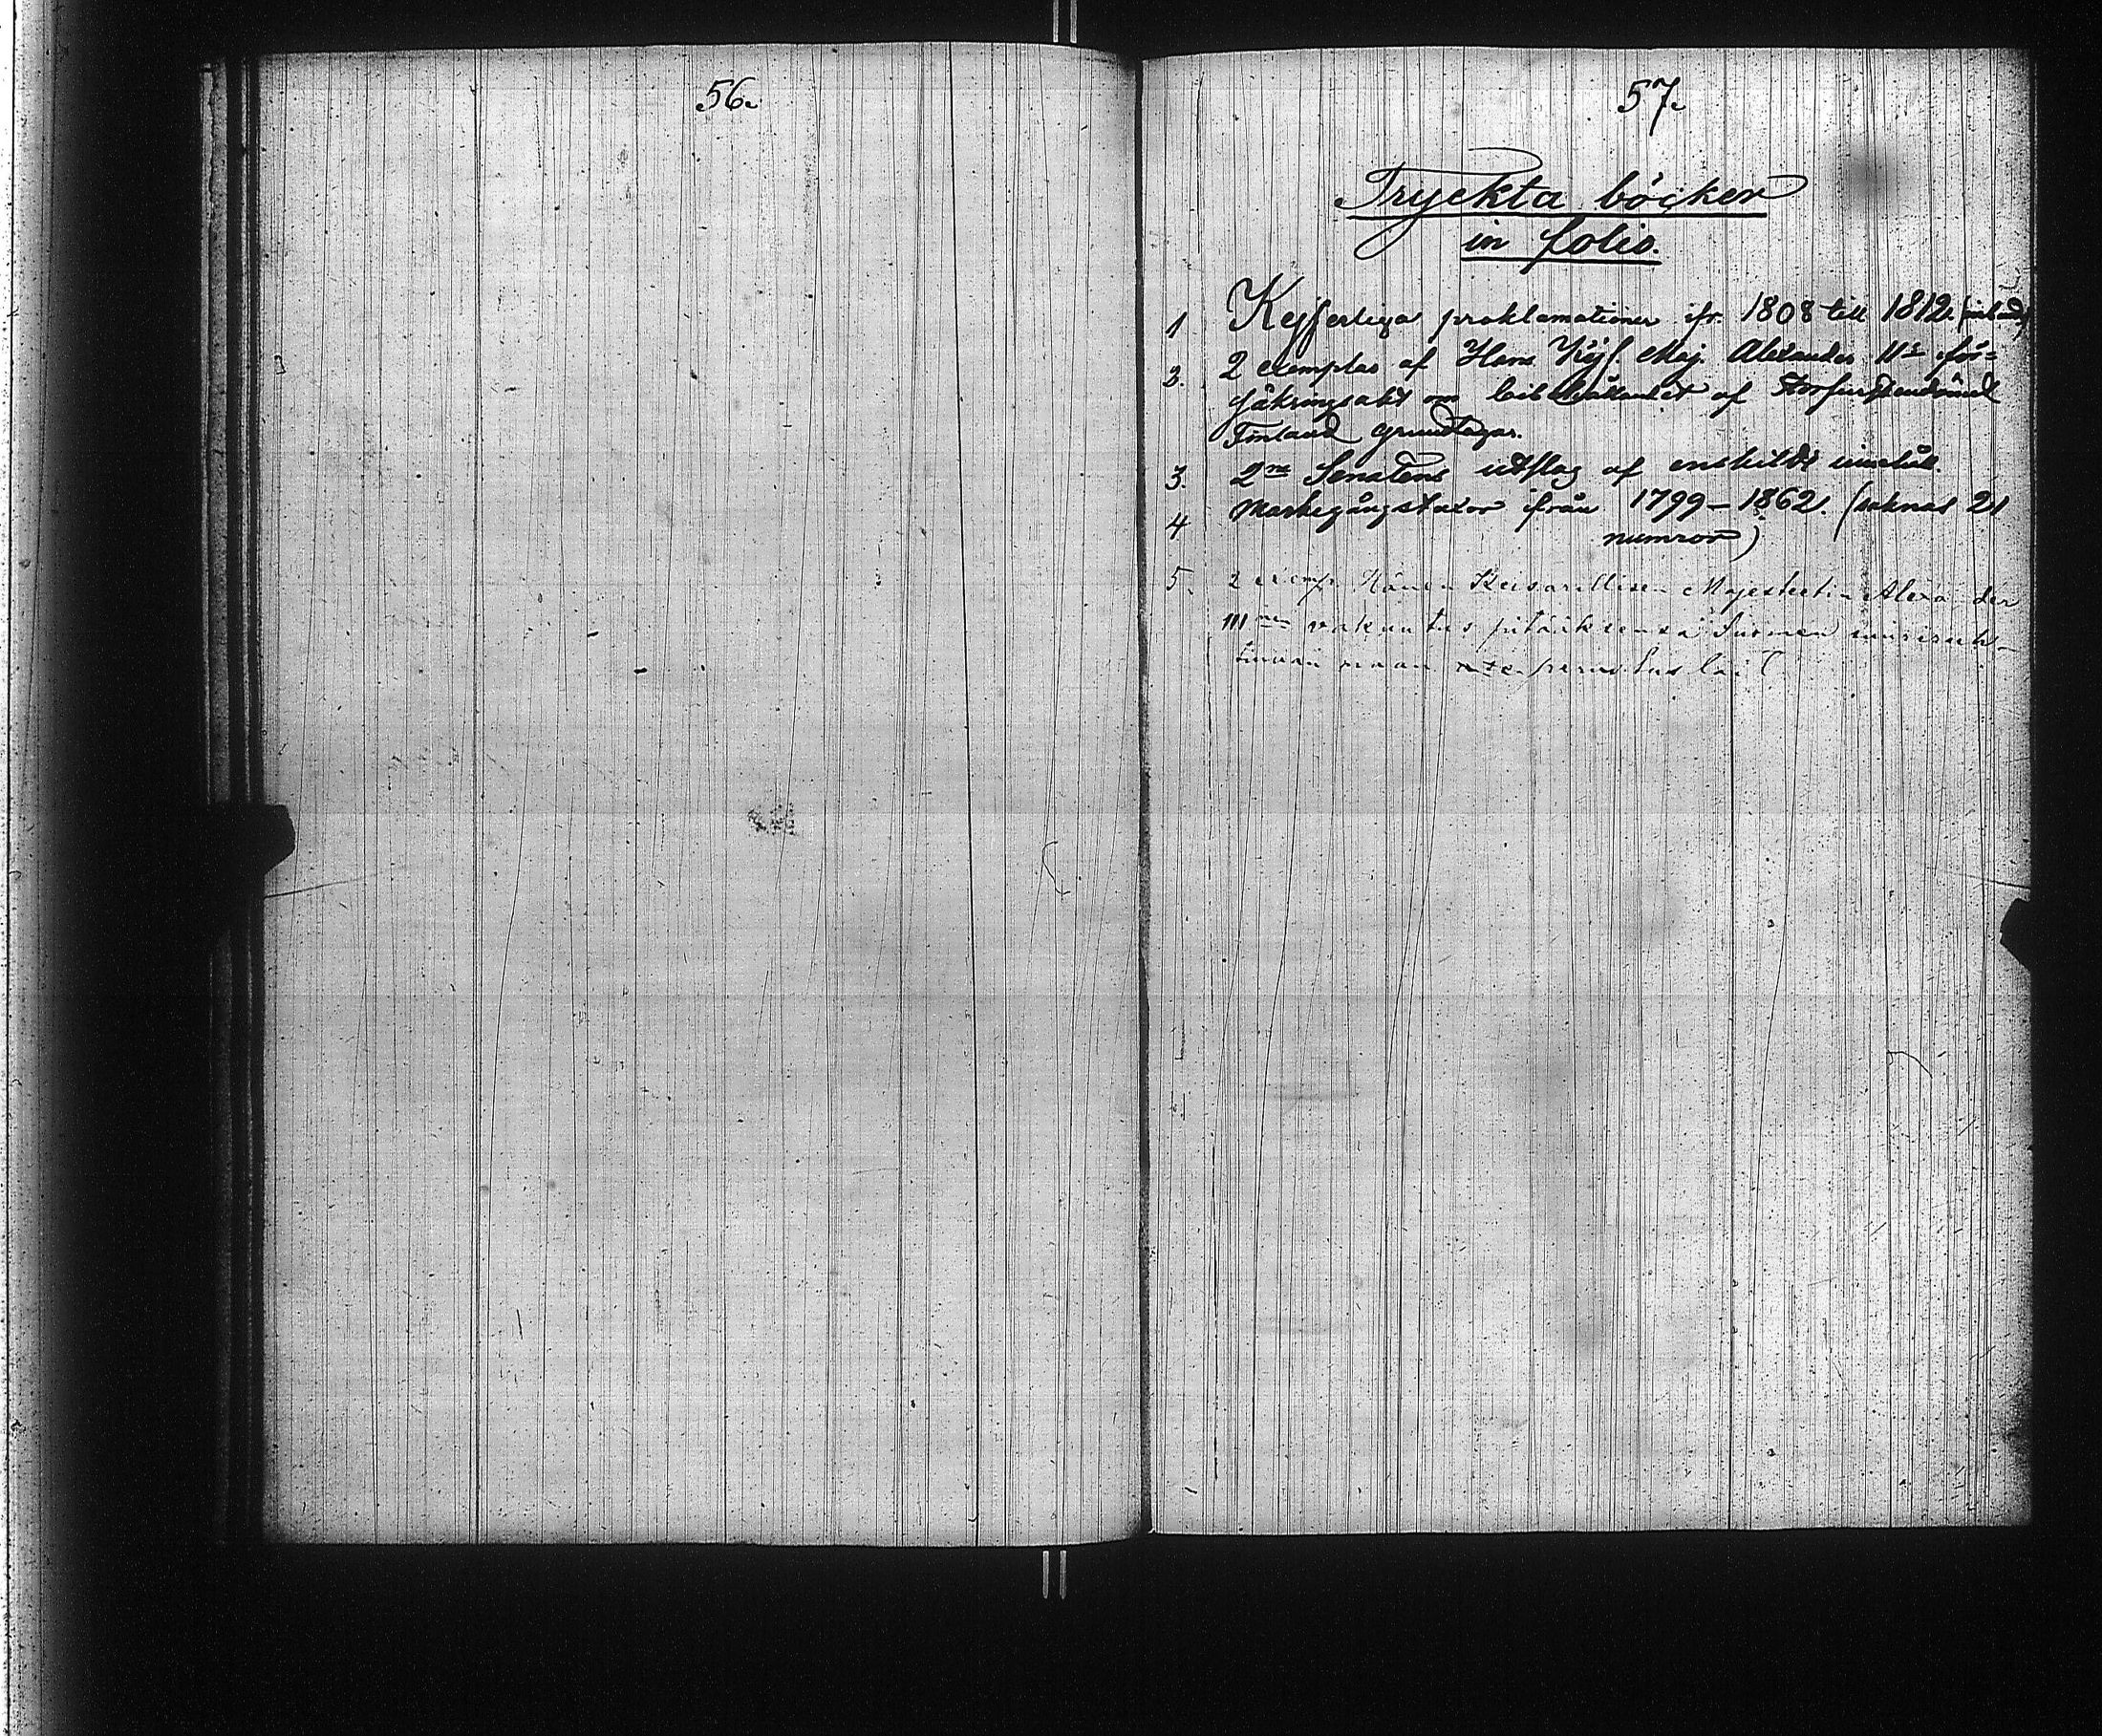 56.
57.
Tryckta böcker
in folio.
1 Kejserliga proklamationer ifr. 1808 till 1812. (inband)
2. 2 exemplar af Hans Kejs. Maj. Alexander II:s för=
säkringsakt om bibehållandet af Storfurstendömet
Finland grundlagar.
3. 2ne Senatens utslag af enskildt innehåll.
4 Markegångstaxor från 1799–1862. (saknas 21
numror)
5. 2 exemp. Hänen Keisarillisen Majesteetin Alexander
III nen vakuutus pitääksensä Suomen suuriruh-
tinaan maan perustus lait